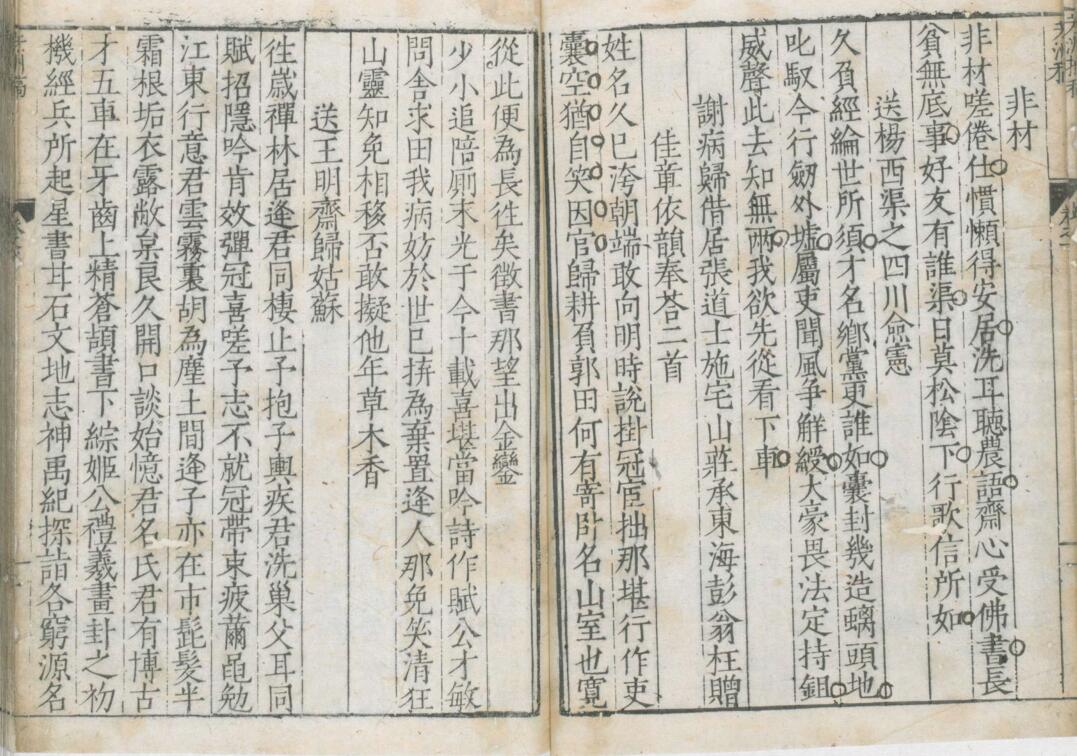 非材
非材嗟倦仕慣懶得安居洗耳聽農語齋心受佛書長
貧無底事好友有誰渠日莫松陰下行歌信所如
送楊西渠之四川僉憲
久負經綸世所須才名鄉黨更誰如囊封幾造螭頭地
叱馭今行劒外墟屬吏聞風爭解綬大豪畏法定持鉏
威聲此去知無兩我欲先從看下車
謝病歸借居張道士施宅山莊承東海彭翁枉贈
佳章依韻奉荅二首
姓名久已洿朝端敢向明時說掛冠宦拙那堪行作吏
囊空猶自笑因官歸耕負郭田何有寄卧名山室也寬
從此便為長徃矣徵書那望出金鑾
少小追陪厠末光于今十載喜堪當吟詩作賦公才敏
問舍求田我病妨於世已拚為棄置逢人那免笑清狂
山靈知免相移否敢擬他年草木香
送王明齋歸姑蘇
徃歲禪林居逢君同棲止予抱子輿疾君洗巢父耳同
賦招隱吟肯效彈冠喜嗟予志不就冠帶束疲薾黽勉
江東行意君雲霧裏胡為塵土間逢子亦在市髭髮半
霜根垢衣露敝枲良久開口談始憶君名氏君有博古
才五車在牙齒上精蒼頡書下綜姬公禮羲畫封之初
機經兵所起星書甘石文地志神禹紀探詣各窮源名